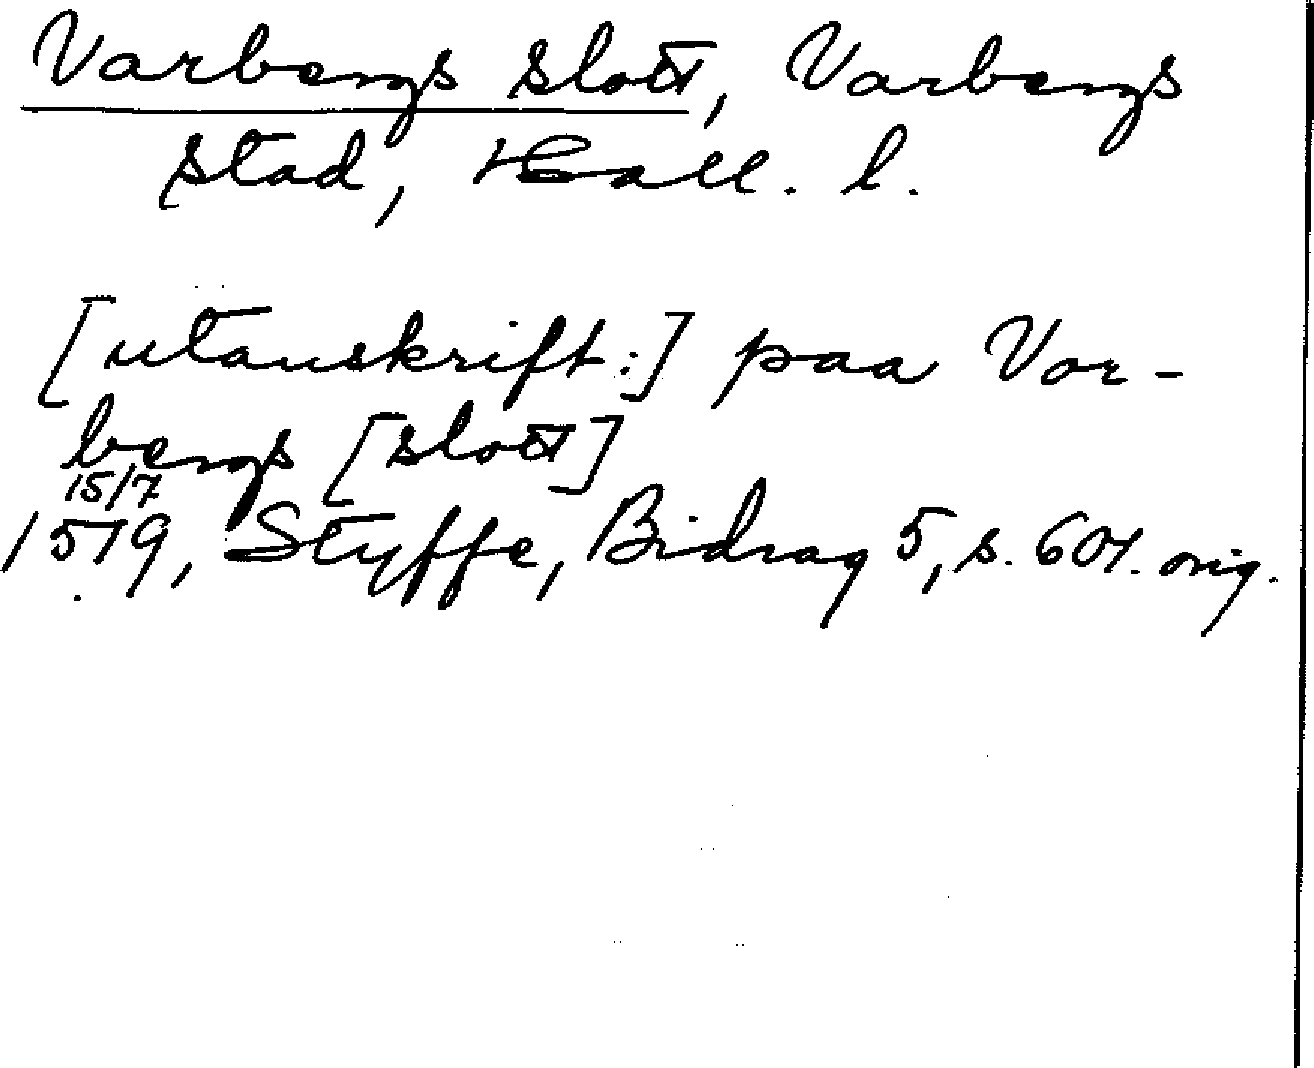 Varbergs slott, Varbergs
stad, Hall. l.
[utanskrift:] paa Vor-
bergs [slott]
15/7
1519, Styffe, Bidrag 5, s. 601. orig.